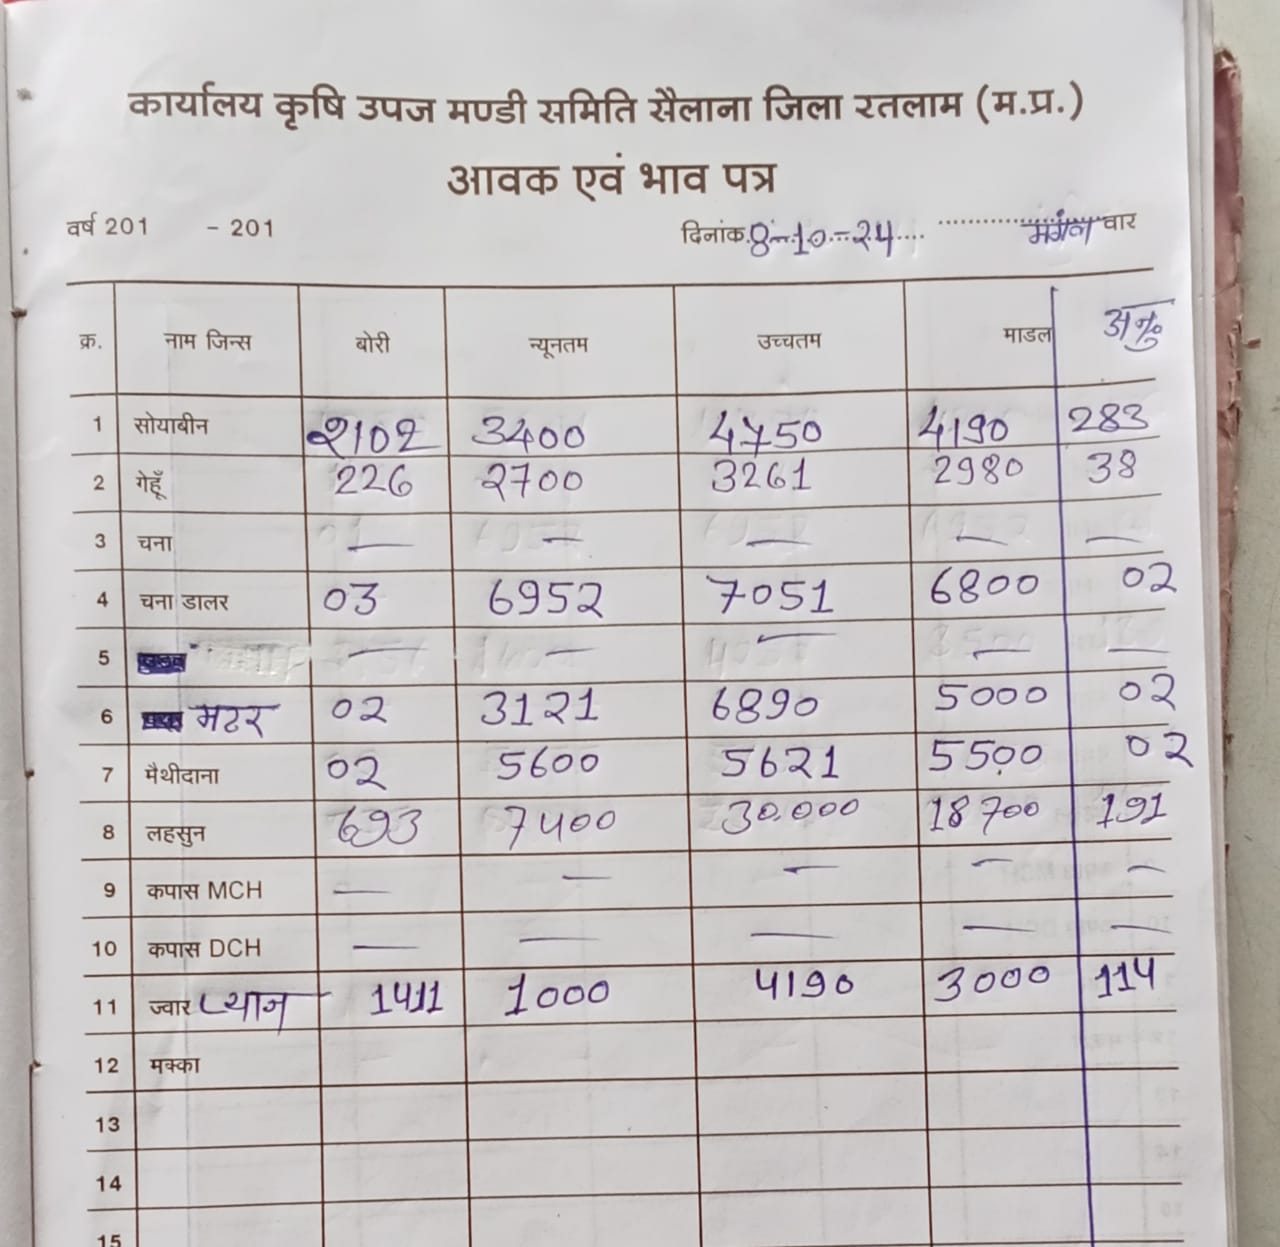 कार्यालय कृषि उपज मण्डी समिति सैलाना जिला रतलाम (म.प्र.)
आवक एवं भाव पत्र
वर्ष 201 - 201 दिनांक 8-10-24 मंगल वार
क्र. नाम जिन्स बोरी न्यूनतम उच्चतम माडल अनु०
1 सोयाबीन 2102 3400 4750 4190 283
2 गेहूँ 226 2700 3261 2980 38
3 चना — — — — —
4 चना डालर 03 6952 7051 6800 02
5 — — — — —
6 मटर 02 3121 6890 5000 02
7 मैथीदाना 02 5600 5621 5500 02
8 लहसुन 693 7400 30.000 18700 191
9 कपास MCH — — — — —
10 कपास DCH — — — — —
11 ज्वार प्याज 1411 1000 4190 3000 114
12 मक्का
13
14
15